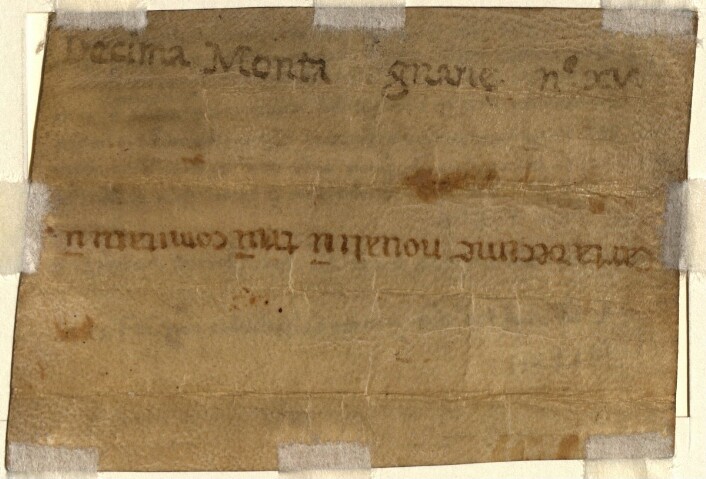 Decima Montagnane nº xv.
Carta decime noualiū triū comitatuū.